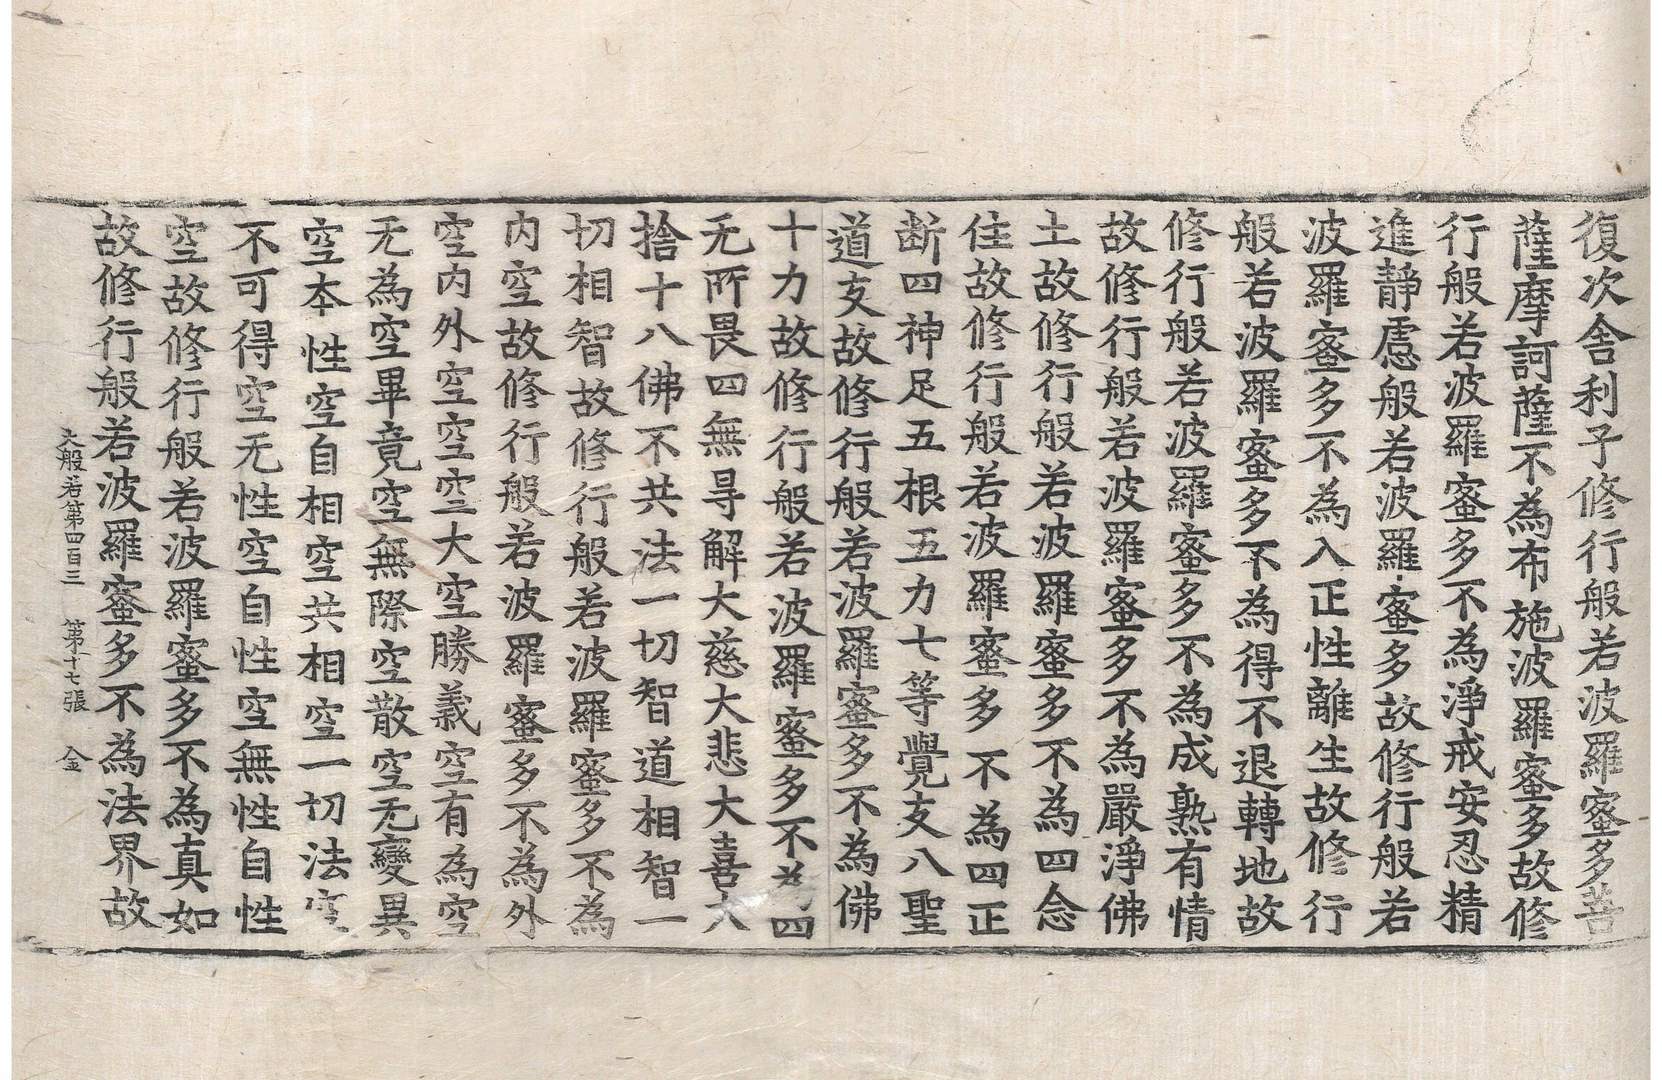 復次舍利子修行般若波羅蜜多菩
薩摩訶薩不為布施波羅蜜多故修
行般若波羅蜜多不為淨戒安忍精
進靜慮般若波羅蜜多故修行般若
波羅蜜多不為入正性離生故修行
般若波羅蜜多不為得不退轉地故
修行般若波羅蜜多不為成熟有情
故修行般若波羅蜜多不為嚴淨佛
土故修行般若波羅蜜多不為四念
住故修行般若波羅蜜多不為四正
断四神足五根五力七等覺支八聖
道支故修行般若波羅蜜多不為佛
十力故修行般若波羅蜜多不為四
无所畏四無㝵解大慈大悲大喜大
捨十八佛不共法一切智道相智一
切相智故修行般若波羅蜜多不為
内空故修行般若波羅蜜多不為外
空内外空空空大空勝義空有為空
无為空畢竟空無際空散空无變異
空本性空自相空共相空一切法空
不可得空无性空自性空無性自性
空故修行般若波羅蜜多不為真如
故修行般若波羅蜜多不為法界故
大般若第四百三 第十七張 金